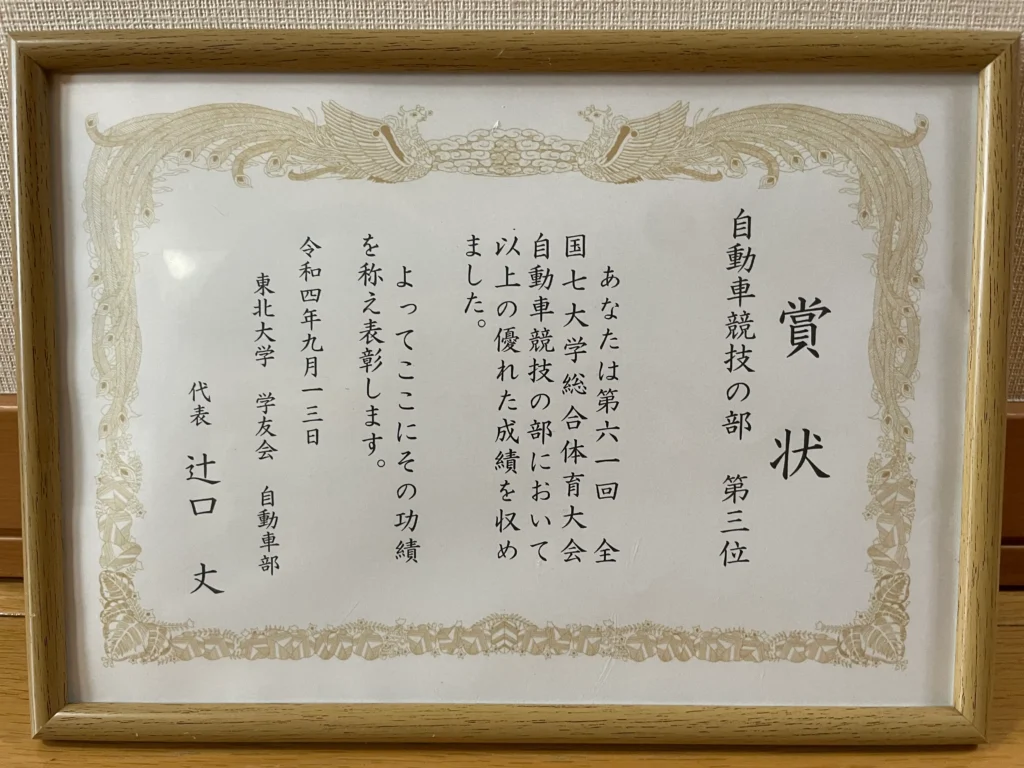 賞状
自動車競技の部 第三位
あなたは第六一回 全
国七大学総合体育大会
自動車競技の部において
以上の優れた成績を収め
ました。
よってここにその功績
を称え表彰します。
令和四年九月一三日
東北大学 学友会 自動車部
代表 辻口 丈